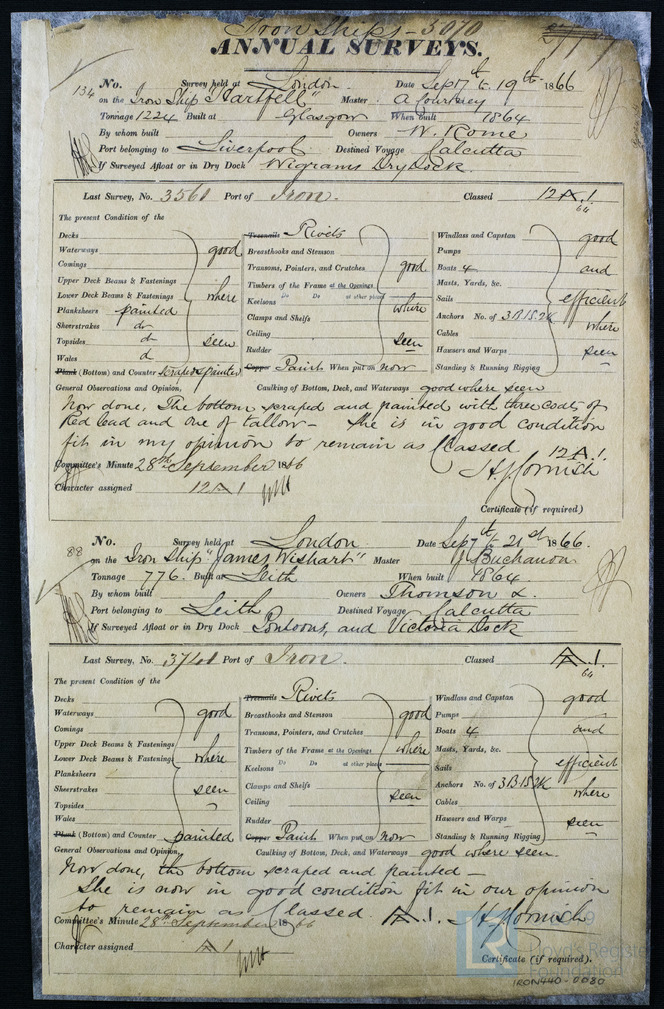 Iron Ships - 5070
ANNUAL SURVEYS.
134 No. Survey held at London. Date Sep 7th & 19th 1866
on the Iron Ship "Hartfell" Master A Courtney
Tonnage 1224 Built at Glasgow When built 1864
By whom built Owners W. Rome
Port belonging to Liverpool Destined Voyage Calcutta
If Surveyed Afloat or in Dry Dock Wigrams Dry Dock.
Last Survey, No. 3561 Port of Iron. Classed 12 A.1.
64
The present Condition of the
Decks Treenails Rivets Windlass and Capstan good
Waterways good Breasthooks and Stemson Pumps
Comings Transoms, Pointers, and Crutches good Boats 4 and
Upper Deck Beams & Fastenings Timbers of the Frame at the Openings Masts, Yards, &c.
Lower Deck Beams & Fastenings where Keelsons Do Do at other places where Sails efficient
Planksheers painted Clamps and Shelfs Anchors No. of 3B.1S.2K where
Sheerstrakes do Ceiling Cables
Topsides do seen Rudder seen Hawsers and Warps seen
Wales d Copper Paint When put on now Standing & Running Rigging
Plank (Bottom) and Counter scraped & painted
General Observations and Opinion, Caulking of Bottom, Deck, and Waterways good where seen
Now done, The bottom scraped and painted with three coats of
Red lead and one of tallow - She is in good condition
fit in my opinion to remain as Classed 12 A.1.
Committee's Minute 28th September 1866 H J Cornish
Character assigned 12 A 1
Certificate (if required)
88 No. Survey held at London Date Sep 7th & 21st 1866.
on the Iron Ship "James Wishart" Master Buchanan
Tonnage 776. Built at Leith When built 1864
By whom built Owners Thomson &.
Port belonging to Leith Destined Voyage Calcutta
If Surveyed Afloat or in Dry Dock Pontoons, and Victoria Dock
Last Survey, No. 3741 Port of Iron. Classed A.1.
64
The present Condition of the
Decks Treenails Rivets Windlass and Capstan good
Waterways good Breasthooks and Stemson good Pumps
Comings Transoms, Pointers, and Crutches Boats 4 and
Upper Deck Beams & Fastenings Timbers of the Frame at the Openings where Masts, Yards, &c.
Lower Deck Beams & Fastenings where Keelsons Do Do at other places Sails efficient
Planksheers Clamps and Shelfs Anchors No. of 3B.1S.2K where
Sheerstrakes seen Ceiling seen Cables
Topsides Rudder Hawsers and Warps seen
Wales Copper Paint When put on now Standing & Running Rigging
Plank (Bottom) and Counter painted
General Observations and Opinion, Caulking of Bottom, Deck, and Waterways good where seen.
Now done, the bottom scraped and painted -
She is now in good condition fit in our opinion
to remain as Classed. A.1. H J Cornish
Committee's Minute 28th September 1866
Character assigned A 1
Certificate (if required).
LR
Lloyd's Register
Foundation
IRON440-0080